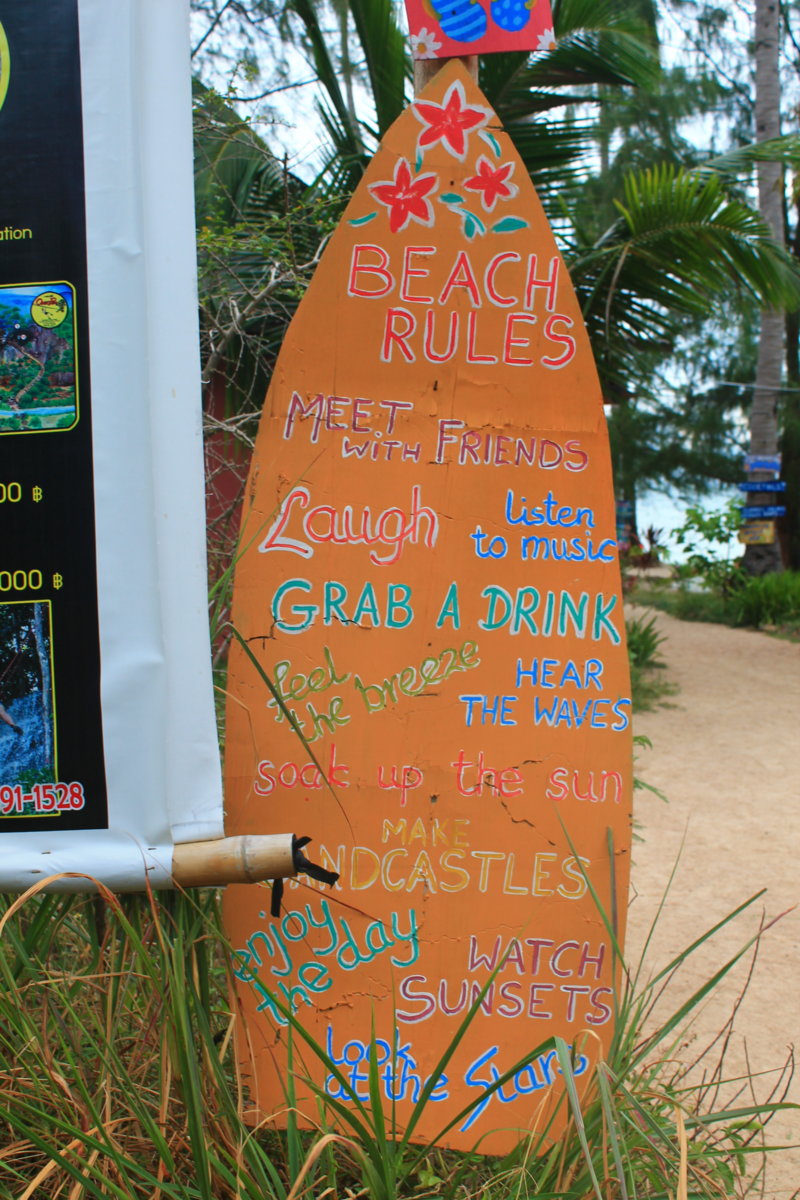 BEACH
RULES
MEET
WITH FRIENDS
Laugh
listen
to music
GRAB A DRINK
feel
the breeze
HEAR
THE WAVES
soak up the sun
MAKE
SANDCASTLES
enjoy
the day
WATCH
SUNSETS
look
at the Stars
00 ฿
000 ฿
91-1528